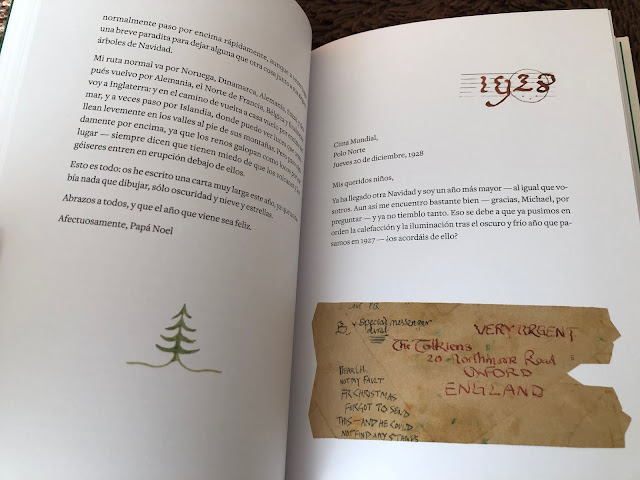 normalmente paso por encima rápidamente, aunque a
una breve paradita para dejar alguna que otra cosa junto a
árboles de Navidad.
Mi ruta normal va por Noruega, Dinamarca, Alemania, Suiza,
pués vuelvo por Alemania, el Norte de Francia, Bélgica y
voy a Inglaterra; y en el camino de vuelta a casa vuelo por
mar, y a veces paso por Islandia, donde puedo ver luces que
llean levemente en los valles al pie de sus montañas. Pero paso
damente por encima, ya que los renos galopan como locos por
lugar — siempre dicen que tienen miedo de que los volcanes y los
géiseres entren en erupción debajo de ellos.
Esto es todo: os he escrito una carta muy larga este año, ya que no ha-
bía nada que dibujar, sólo oscuridad y nieve y estrellas.
Abrazos a todos, y que el año que viene sea feliz.
Afectuosamente, Papá Noel
1928
Cima Mundial,
Polo Norte
Jueves 20 de diciembre, 1928
Mis queridos niños,
Ya ha llegado otra Navidad y soy un año más mayor — al igual que vo-
sotros. Aun así me encuentro bastante bien — gracias, Michael, por
preguntar — y ya no tiemblo tanto. Eso se debe a que ya pusimos en
orden la calefacción y la iluminación tras el oscuro y frío año que pa-
samos en 1927 — ¿os acordáis de ello?
By special messenger
VERY URGENT
The Tolkiens
20 Northmoor Road
OXFORD
ENGLAND
NOT MY FAULT
FR CHRISTMAS
FORGOT TO SEND
THIS — AND HE COULD
NOT FIND ANY STAMPS